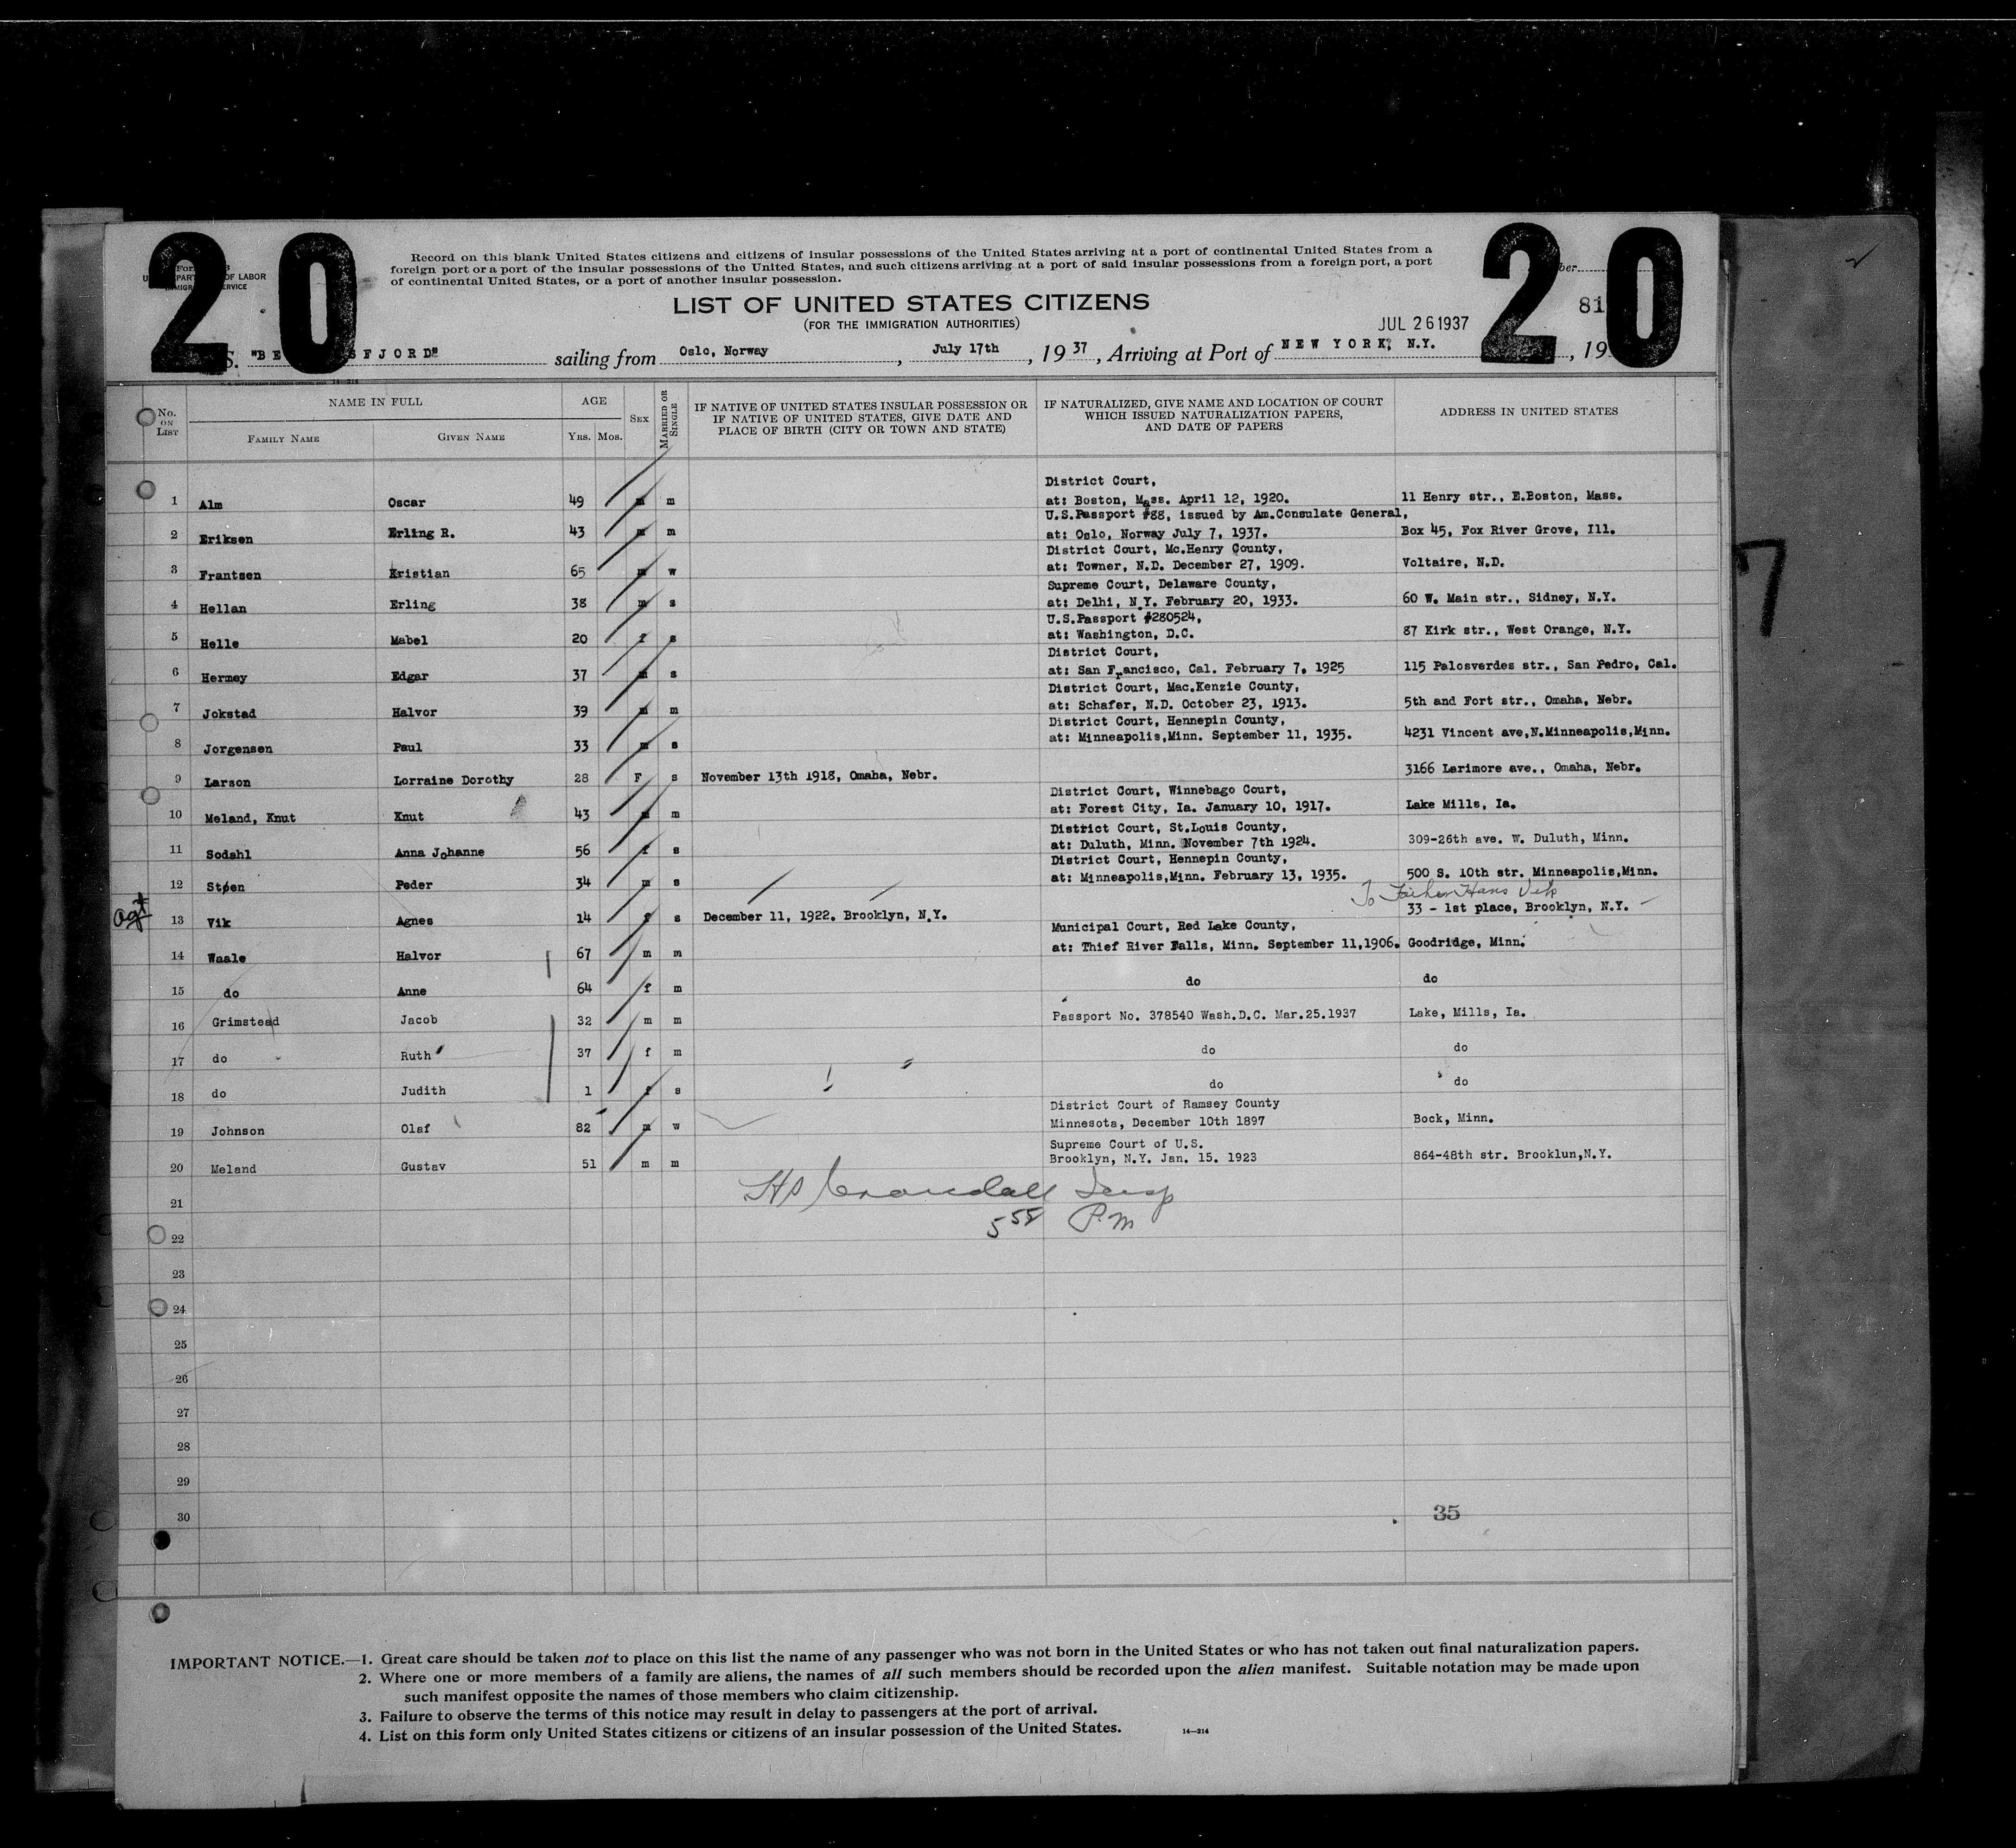 20 20
Record on this blank United States citizens and citizens of insular possessions of the United States arriving at a port of continental United States from a
foreign port or a port of the insular possessions of the United States, and such citizens arriving at a port of said insular possessions from a foreign port, a port
of continental United States, or a port of another insular possession.
OF LABOR
LIST OF UNITED STATES CITIZENS
(FOR THE IMMIGRATION AUTHORITIES)
81
JUL 26 1937
S. "BE SFJORD" sailing from Oslo, Norway, July 17th, 1937, Arriving at Port of NEW YORK, N.Y., 19
No. ON LIST
NAME IN FULL
FAMILY NAME GIVEN NAME
AGE
YRS. MOS.
SEX
MARRIED OR SINGLE
IF NATIVE OF UNITED STATES INSULAR POSSESSION OR
IF NATIVE OF UNITED STATES, GIVE DATE AND
PLACE OF BIRTH (CITY OR TOWN AND STATE)
IF NATURALIZED, GIVE NAME AND LOCATION OF COURT
WHICH ISSUED NATURALIZATION PAPERS,
AND DATE OF PAPERS
ADDRESS IN UNITED STATES
District Court,
1 Alm Oscar 49 m m at: Boston, Mass. April 12, 1920. 11 Henry str., E.Boston, Mass.
U.S.Passport #88, issued by Am.Consulate General,
2 Eriksen Erling R. 43 m m at: Oslo, Norway July 7, 1937. Box 45, Fox River Grove, Ill.
District Court, Mc.Henry County,
3 Frantsen Kristian 65 m w at: Towner, N.D. December 27, 1909. Voltaire, N.D.
Supreme Court, Delaware County,
4 Hellan Erling 38 m s at: Delhi, N.Y. February 20, 1933. 60 W. Main str., Sidney, N.Y.
U.S.Passport #280524,
5 Helle Mabel 20 f s at: Washington, D.C. 87 Kirk str., West Orange, N.Y.
District Court,
6 Hermey Edgar 37 m s at: San Francisco, Cal. February 7, 1925 115 Palosverdes str., San Pedro, Cal.
District Court, Mac.Kenzie County,
7 Jokstad Halvor 39 m m at: Schafer, N.D. October 23, 1913. 5th and Fort str., Omaha, Nebr.
District Court, Hennepin County,
8 Jorgensen Paul 33 m s at: Minneapolis,Minn. September 11, 1935. 4231 Vincent ave,N.Minneapolis,Minn.
9 Larson Lorraine Dorothy 28 F s November 13th 1918, Omaha, Nebr. 3166 Larimore ave., Omaha, Nebr.
District Court, Winnebago Court,
10 Meland, Knut Knut 43 m m at: Forest City, Ia. January 10, 1917. Lake Mills, Ia.
District Court, St.Louis County,
11 Sodahl Anna Johanne 56 f s at: Duluth, Minn. November 7th 1924. 309-26th ave. W. Duluth, Minn.
District Court, Hennepin County,
12 Støen Peder 34 m s at: Minneapolis,Minn. February 13, 1935. 500 S. 10th str. Minneapolis,Minn.
To Father Hans Vik
13 Vik Agnes 14 f s December 11, 1922. Brooklyn, N.Y. 33 - 1st place, Brooklyn, N.Y.
Municipal Court, Red Lake County,
14 Waale Halvor 67 m m at: Thief River Falls, Minn. September 11,1906. Goodridge, Minn.
15 do Anne 64 f m do do
16 Grimstead Jacob 32 m m Passport No. 378540 Wash.D.C. Mar.25.1937 Lake, Mills, Ia.
17 do Ruth 37 f m do do
18 do Judith 1 f s do do
District Court of Ramsey County
19 Johnson Olaf 82 m w Minnesota, December 10th 1897 Bock, Minn.
Supreme Court of U.S.
20 Meland Gustav 51 m m Brooklyn, N.Y. Jan. 15. 1923 864-48th str. Brooklun,N.Y.
21 Crandall Insp
22 5 58 P.M
23
24
25
26
27
28
29
30 35
IMPORTANT NOTICE.—1. Great care should be taken not to place on this list the name of any passenger who was not born in the United States or who has not taken out final naturalization papers.
2. Where one or more members of a family are aliens, the names of all such members should be recorded upon the alien manifest. Suitable notation may be made upon
such manifest opposite the names of those members who claim citizenship.
3. Failure to observe the terms of this notice may result in delay to passengers at the port of arrival.
4. List on this form only United States citizens or citizens of an insular possession of the United States. 14—214
7